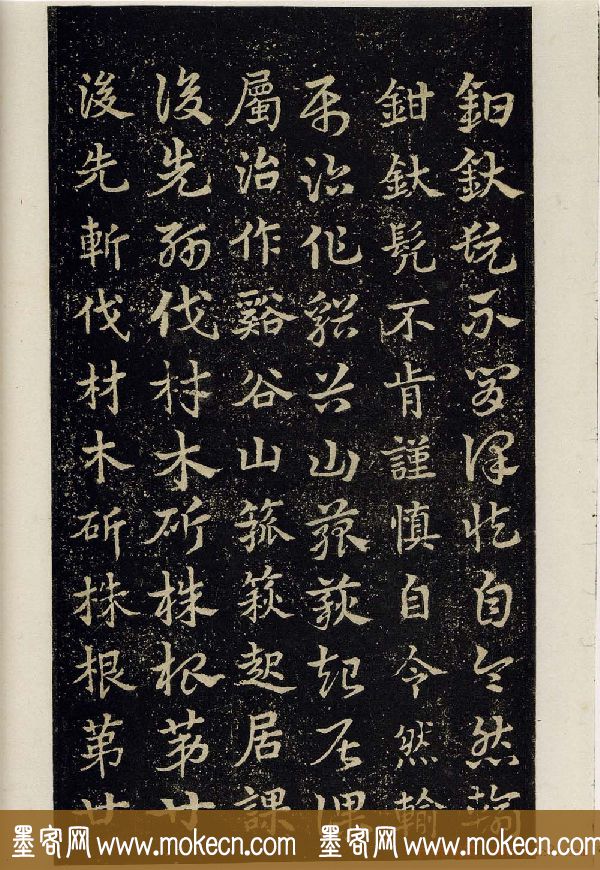 鉗釱髡不肯謹慎自令然輸
鉗釱髡不肯謹慎自令然輸
屬治作谿谷山箛篍起居課
屬治作谿谷山箛篍起居課
後先斬伐材木斫株根苐廿
後先斬伐材木斫株根苐廿
墨客网 www.mokecn.com 墨客网 www.mokecn.com